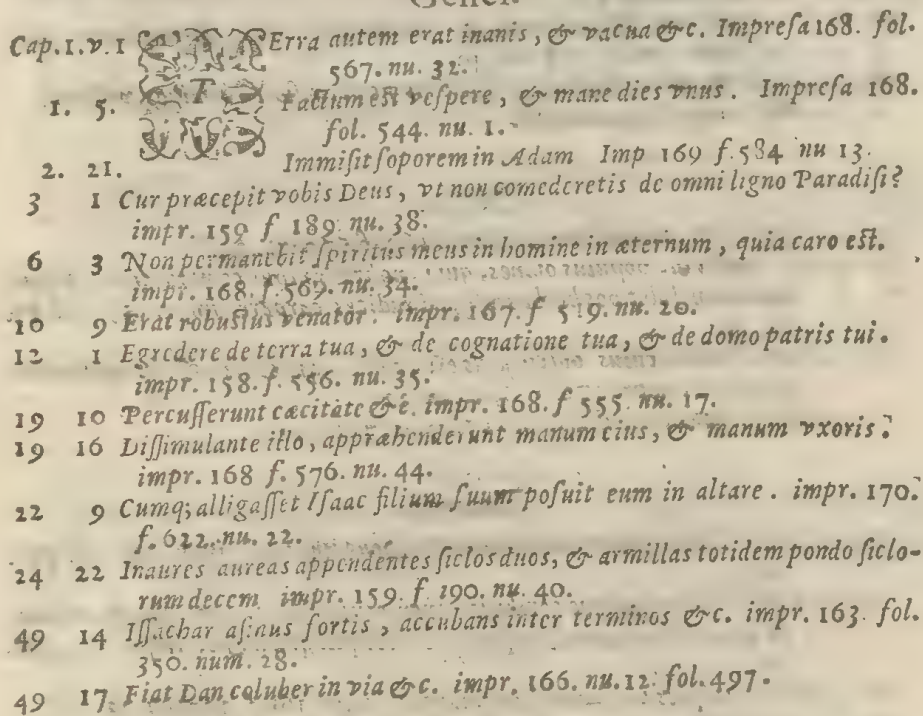 Genes.
Cap. 1. v. 1 TErra autem erat inanis, & vacua &c. Impresa 168. fol.
567. nu. 32.
1. 5. Factum est vespere, & mane dies vnus. Impresa 168.
fol. 544. nu. 1.
2. 21. Immisit soporem in Adam Imp 169 f. 584 nu 13.
3 1 Cur præcepit vobis Deus, vt non comederetis de omni ligno Paradisi?
impr. 159 f 189. nu. 38.
6 3 Non permanebit spiritus meus in homine in æternum, quia caro est.
impr. 168. f. 569. nu. 34.
10 9 Erat robustus venator. impr. 167. f 519. nu. 20.
12 1 Egredere de terra tua, & de cognatione tua, & de domo patris tui.
impr. 158. f. 556. nu. 35.
19 10 Percusserunt cæcitate &c. impr. 168. f 555. nu. 17.
19 16 Dissimulante illo, appræhenderunt manum eius, & manum vxoris.
impr. 168 f. 576. nu. 44.
22 9 Cumq; alligasset Isaac filium suum posuit eum in altare. impr. 170.
f. 622. nu. 22.
24 22 Inaures aureas appendentes siclos duos, & armillas totidem pondo siclo-
rum decem impr. 159. f 190. nu. 40.
49 14 Issachar asinus fortis, accubans inter terminos &c. impr. 163. fol.
350. num. 28.
49 17 Fiat Dan coluber in via &c. impr. 166. nu. 12. fol. 497.